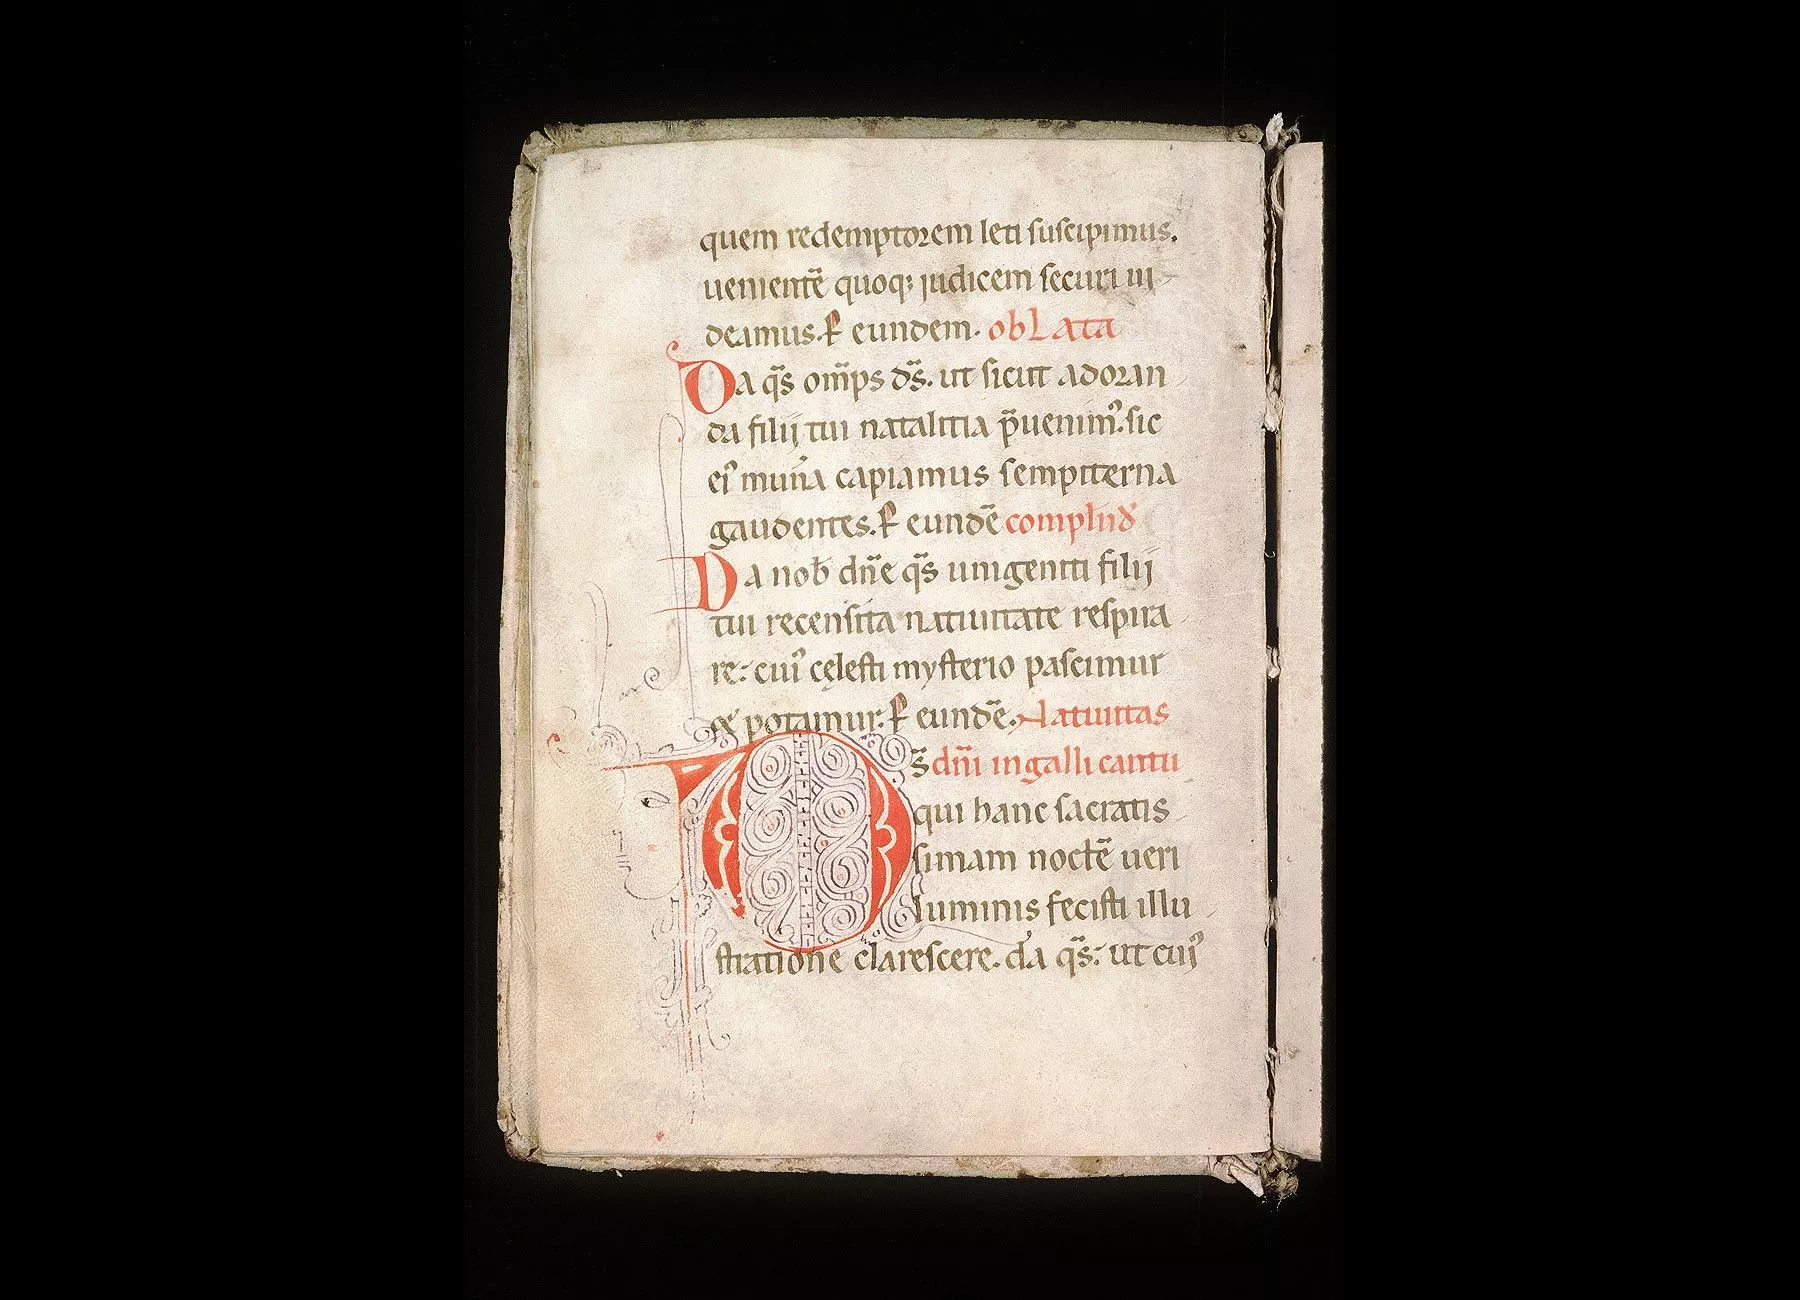 quem redemptorem leti suscipimus.
uenientē quoq; iudicem securi ui
deamus. P̄ eundem. oblata
Da q̄s om̄ps d̄s. ut sicut adoran
da filij tui natalitia p̄uenim᷒. sic
ei᷒ mun̄a capiamus sempiterna
gaudentes. P̄ eundē complnd̄
Da nob̄ dn̄e q̄s unigeniti filij
tui recensita natiuitate respira
re: cui᷒ cęlesti mysterio pascimur
& potamur. P̄ eundē. Natiuitas
D s̄ dn̄i in galli cantu
qui hanc sacratis
simam noctē ueri
luminis fecisti illu
stratione clarescere. da q̄s: ut cui᷒